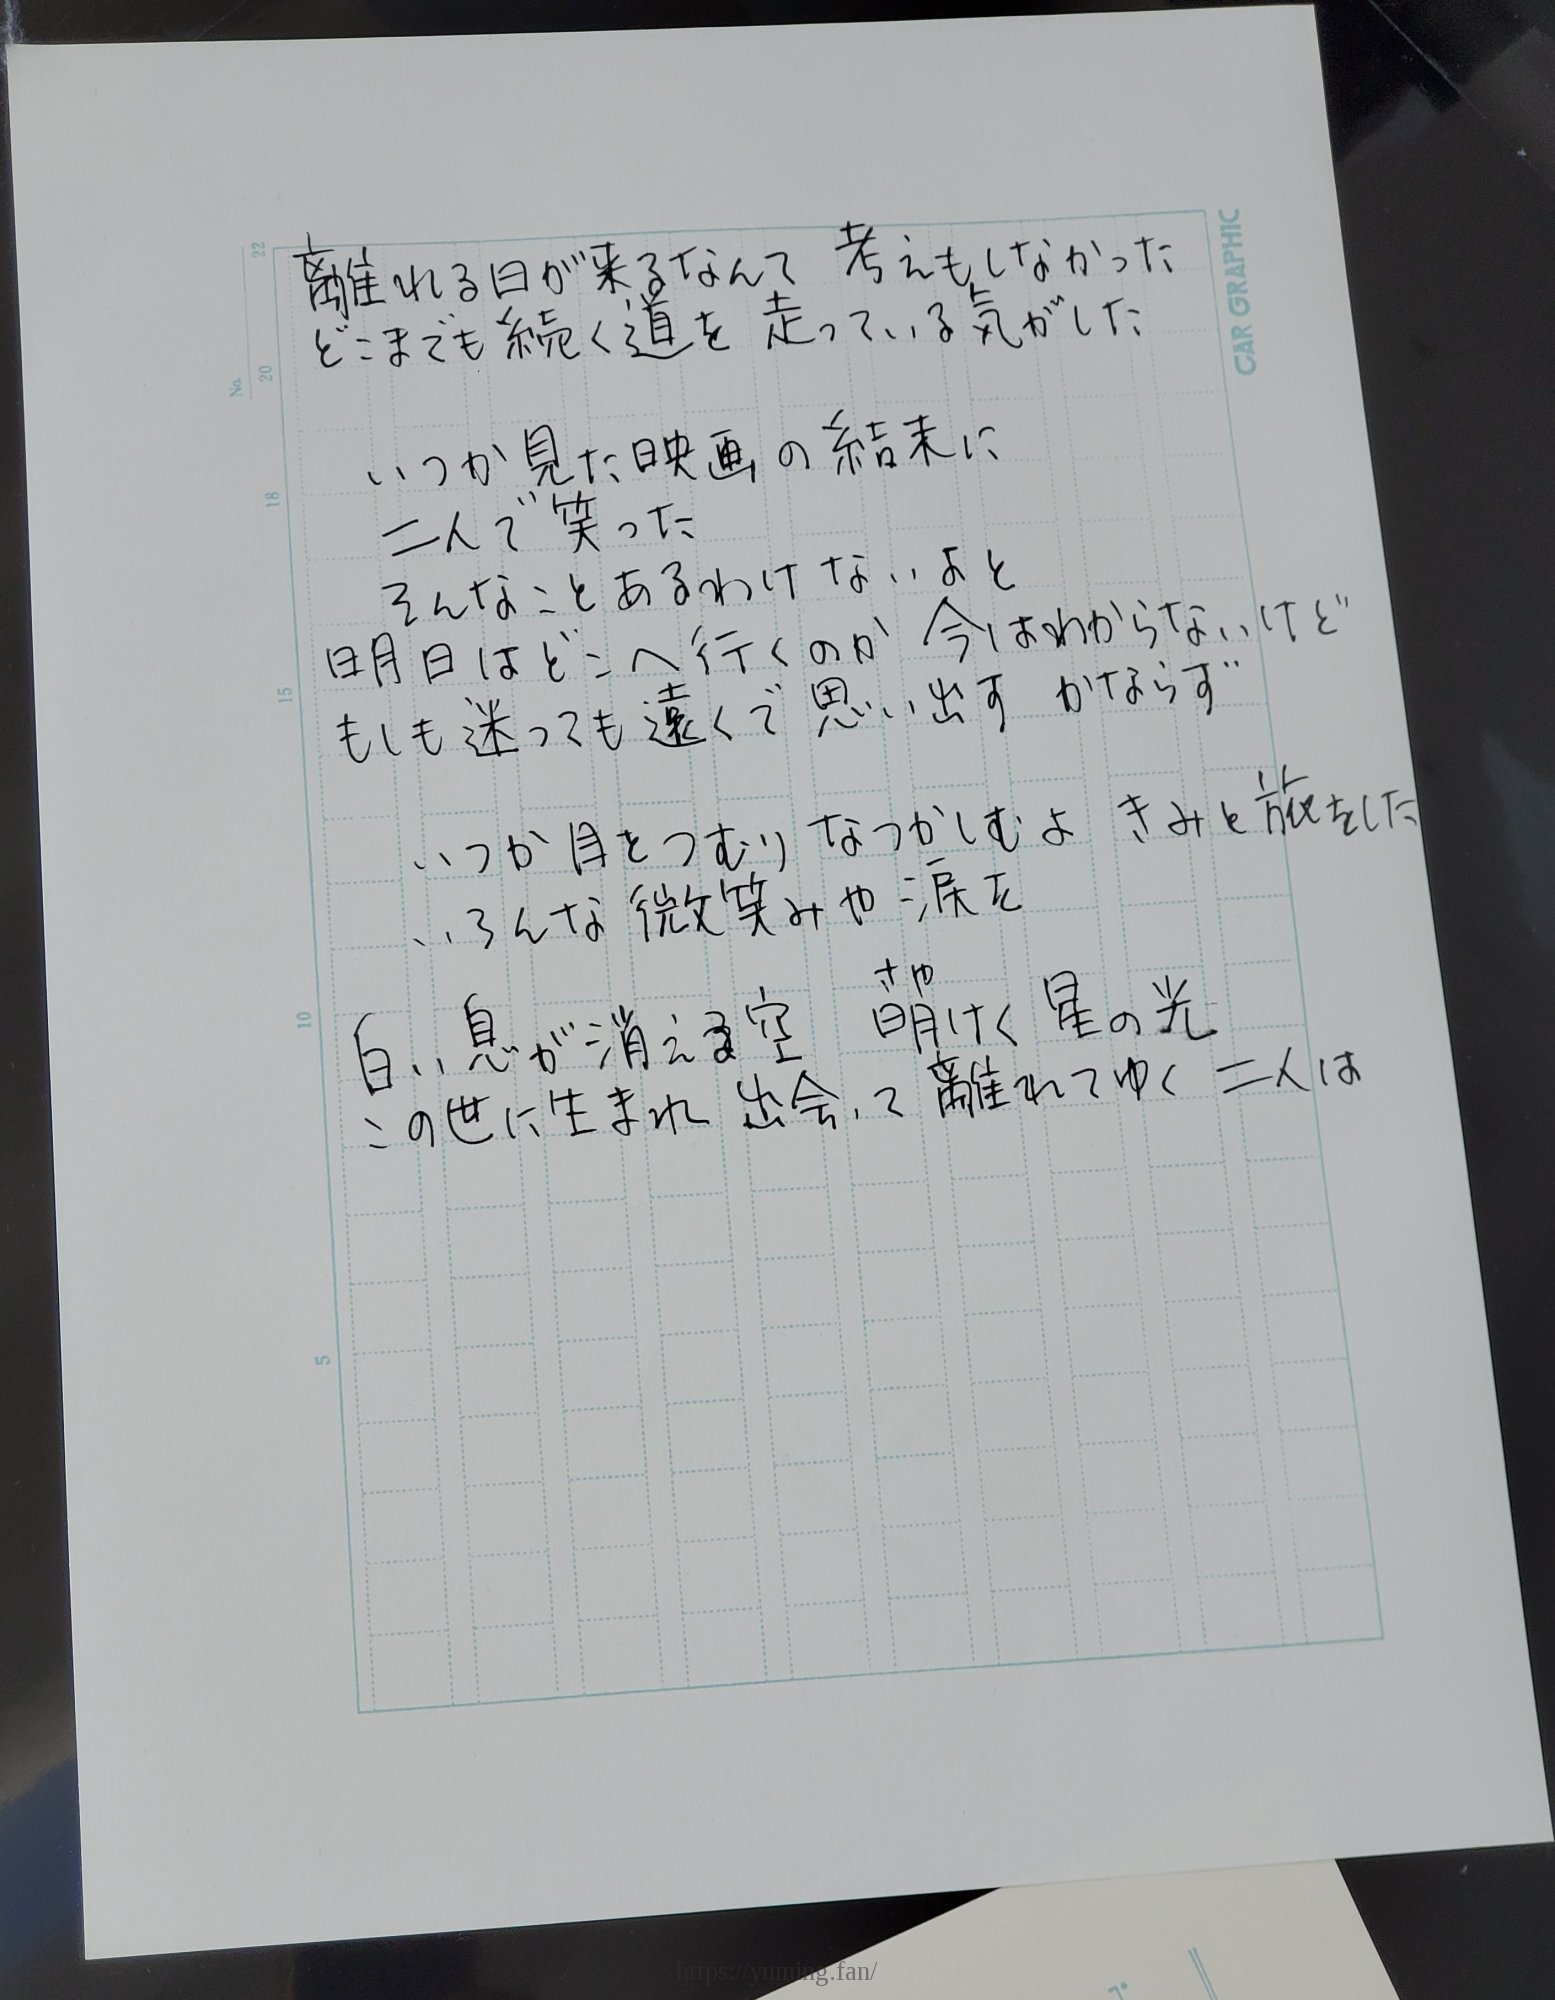 離れる日が来るなんて 考えもしなかった
どこまでも続く道を 走っている気がした
いつか見た映画の結末に
二人で笑った
そんなことあるわけないよと
明日はどこへ行くのか 今はわからないけど
もしも迷っても遠くで思い出す かならず
いつか目をつむりなつかしむよ きみと旅をした
いろんな微笑みや涙を
さや
白い息が消える空 萌けく星の光
この世に生まれ 出会って離れてゆく二人は
CAR GRAPHIC
No.
22
20
18
15
10
5
https://yuming.fan/